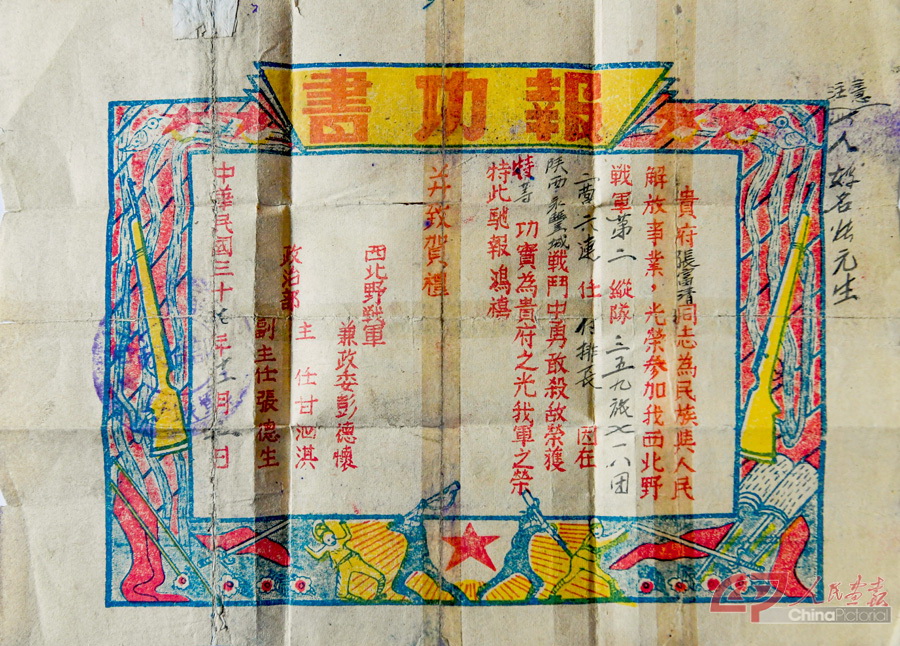 報功書
貴府張富清同志為民族與人民
解放事業，光榮參加我西北野
戰軍第二縱隊三五九旅七一八团
二营六連任付排長因在
陕西永豐城戰鬥中勇敢殺敵榮獲
特等功實為貴府之光我軍之榮
特此馳報鴻禧
并致賀禮
西北野戰軍
兼政委彭德懷
政治部主任甘泗淇
副主任張德生
中華民國三十七年十二月日
注意
人姓名張元生
人民画报
ChinaPictorial